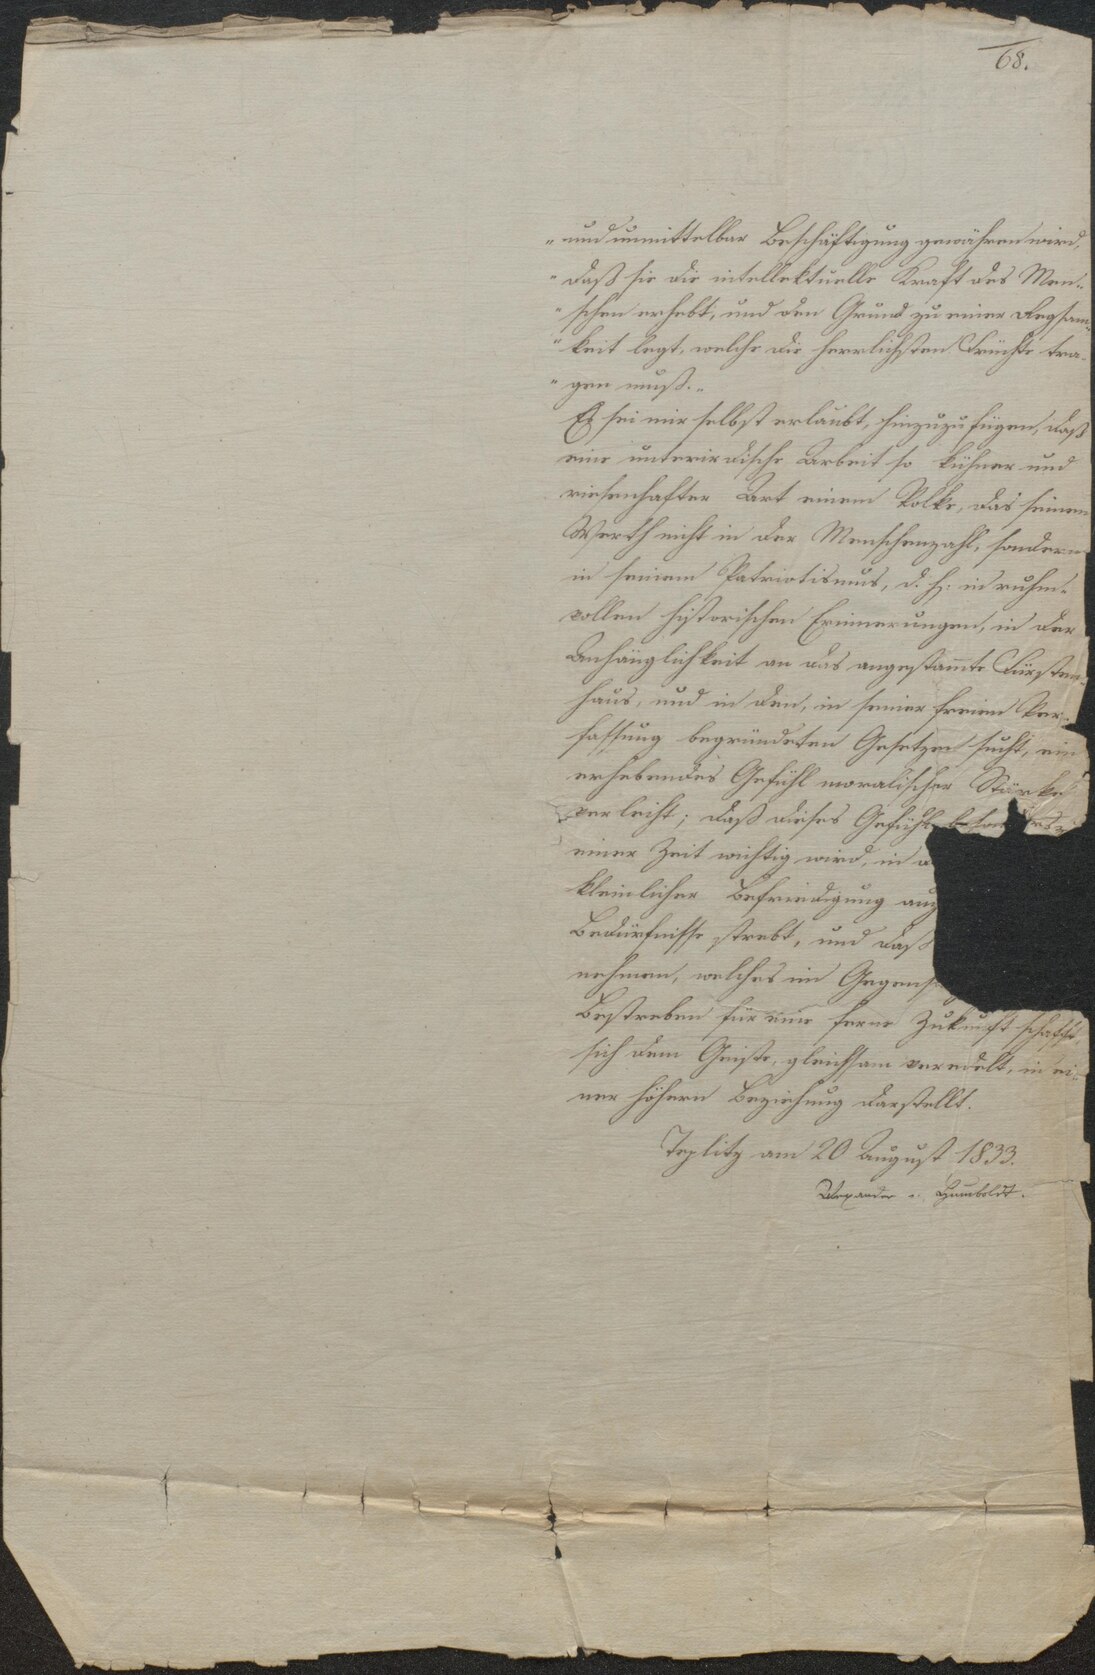 68.
„und unmittelbar Beschäftigung gewähren wird,
„daß sie die intellektuelle Kraft des Men-
„schen erhebt, und den Grund zu einer Regsam-
„keit legt, welche die herrlichsten Früchte tra-
„gen muß.„
Es sei mir selbst erlaubt, hinzuzufügen, daß
eine unterirdische Arbeit so kühner und
riesenhafter Art einem Volke, das seinen
Werth nicht in der Menschenzahl, sondern
in seinem Patriotismus, d. h. in ruhm-
vollen historischen Erinnerungen, in der
Anhänglichkeit an das angestam̄te Fürsten-
haus, und in den, in seiner freien Ver-
fassung begründeten Gesetzen sucht, ein
erhebendes Gefühl moralischer Stärke
verleiht; daß dieses Gefühl
einer Zeit wichtig wird, in
kleinlicher Befriedigung
Bedürfnisse strebt, und daß
nehmen, welches im
Bestreben für eine ferne Zukunft schafft,
sich dem Geiste, gleichsam veredelt, in ei-
ner höhern Beziehung darstellt.
Teplitz am 20 August 1833.
Alexander v. Humboldt.